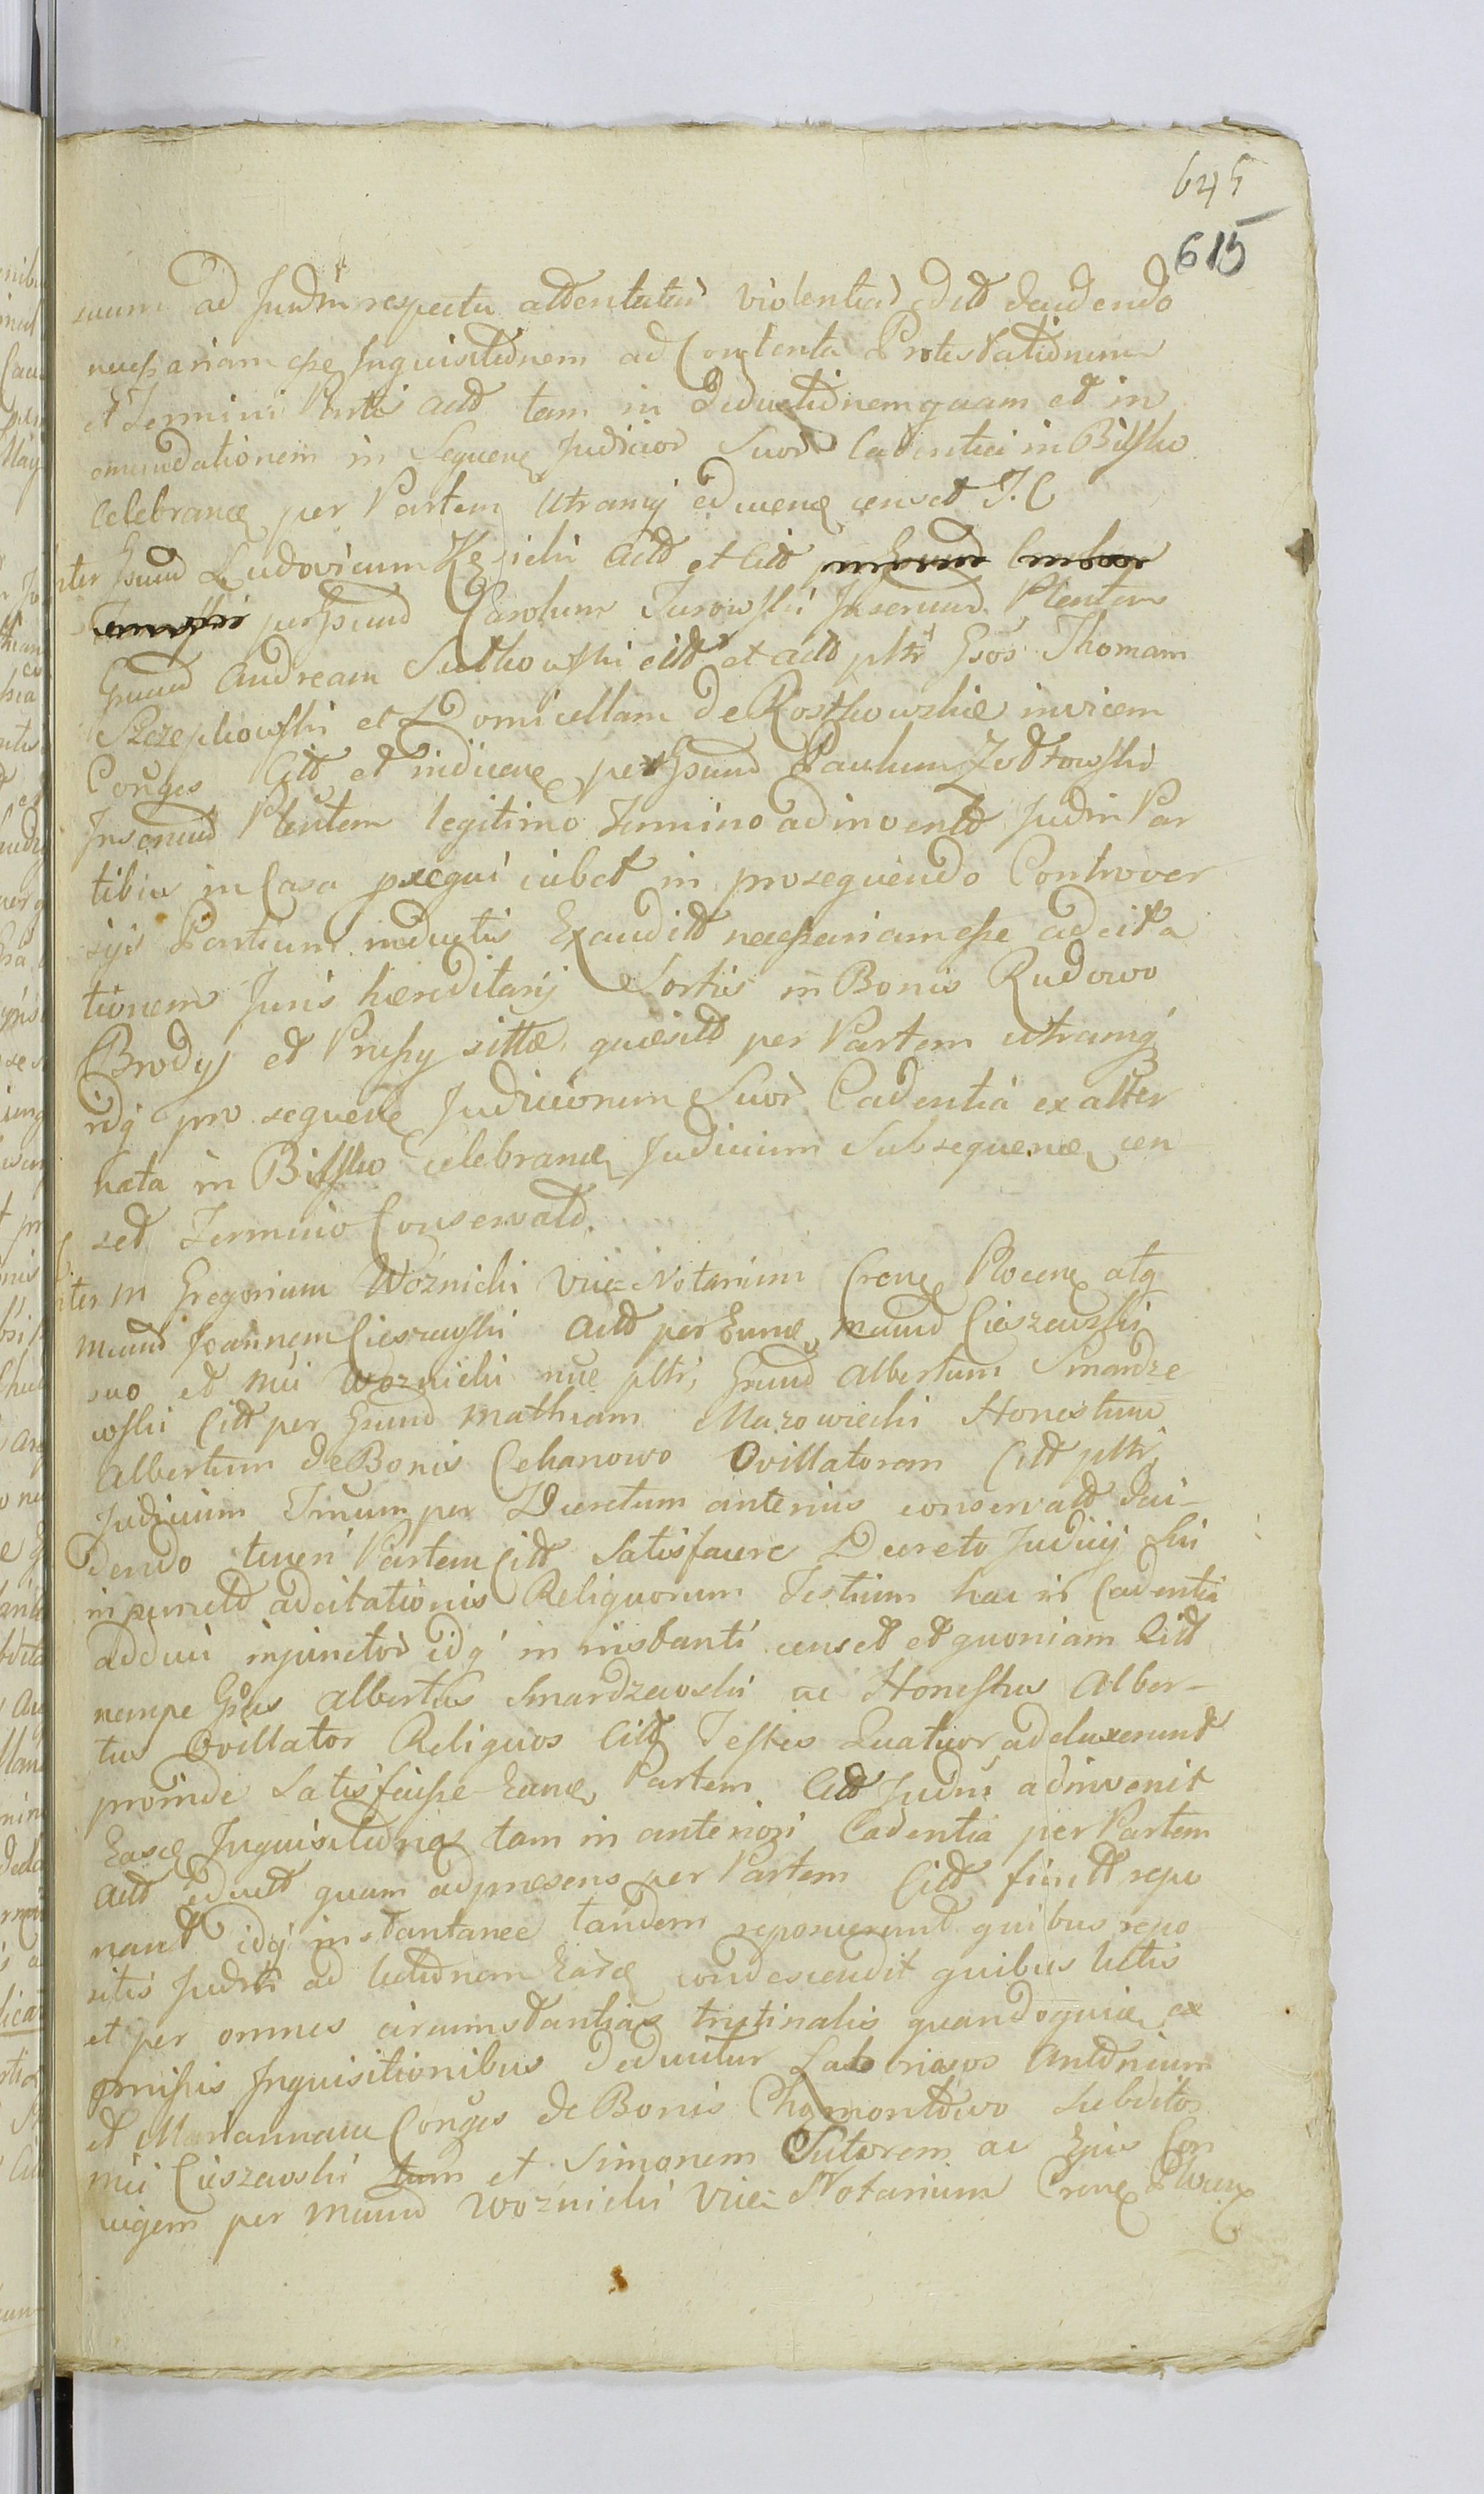 645
615
suum ad Judm respectu attentatae violentiae edit dandendo
necessariam esse Inquisitionem ad Contenta Protestationum
et Termini Parti Actt tam in Deductionem quam et in
emundationem in Sequene Judicior Suor Cadentia in Bilsko
Celebrane per Partem Utramq educene censet J. C
Inter Gnud Ludovicum Kęsicki Actt et Citt
per Gnud Carolum Turowski Inserund Plentem
Gnud Andream Sutkowski citt et actt pltr Gsos Thomam
Szczepkowski et Domicellam de Rostkowskie invicem
Conges Citt et indicene per Gnud Paulum Zołtowski
Inserund Plentem legitimo Termino adinvento Judm Par
tibus in Casa pxequi iubet in prosequendo Controver
sijs Partium inductis Exauditt necessariam esse adcita
tionem Juris haereditarij Sortis in Bonis Rudowo
Brody et Prussy sittae quaesitt per Partem utramq
idq pro sequene Judiciorum Suor Cadentia ex alter
nata in Bilsko celebrane Judicium Subsequene cen
set Termino Conservatt.
Inter M Gregorium Woznicki Vice Notarium Crene Plocene atq
Mund Joannem Cieszewski Actt per Eune Mund Cieszewski
suo et Mci Woznicki nue pltr, Gnud Albertum Smardze
wski Citt per Gnud Mathiam Mazowiecki Honestum
Albertum de Bonis Cekanowo Ovillatorem Citt pltr
Judicium Tmum per Decretum anterius conservatt Deci-
dendo teneri Partem Citt Satisfacere Decreto Judicij Sui
in puncto adcitationis Reliquorum Testium hac in Cadentia
adduci injunctor idq in instanti censet et quoniam Citt
nempe Gsus Albertus Smardzewski ac Honestus Alber-
tus Ovillator Reliquos Citt Testes Quatuor adduxerunt
proinde Satisfecisse Eane Partem Citt Judm adinvenit
Easde Inquisitiones tam in anteriori Cadentia per Partem
Actt eductt quam adpraesens per Partem Citt fiendtt repo
nant idq instantanee tandem reposuerunt quibus repo
sitis Judm ad lectionem Earde condescendit quibus lectis
et per omnes circumstantias trutinatis quandoquide ex
pmissis Inquisitionibus deducitur Laboriosos Antonium
et Mariannam Conges de Bonis Chamontowo Subditos
Mci Cieszewski et Simonem Sutorem ac Ejus Con
iugem per Mund Woznicki Vice Notarium Crene Plocene